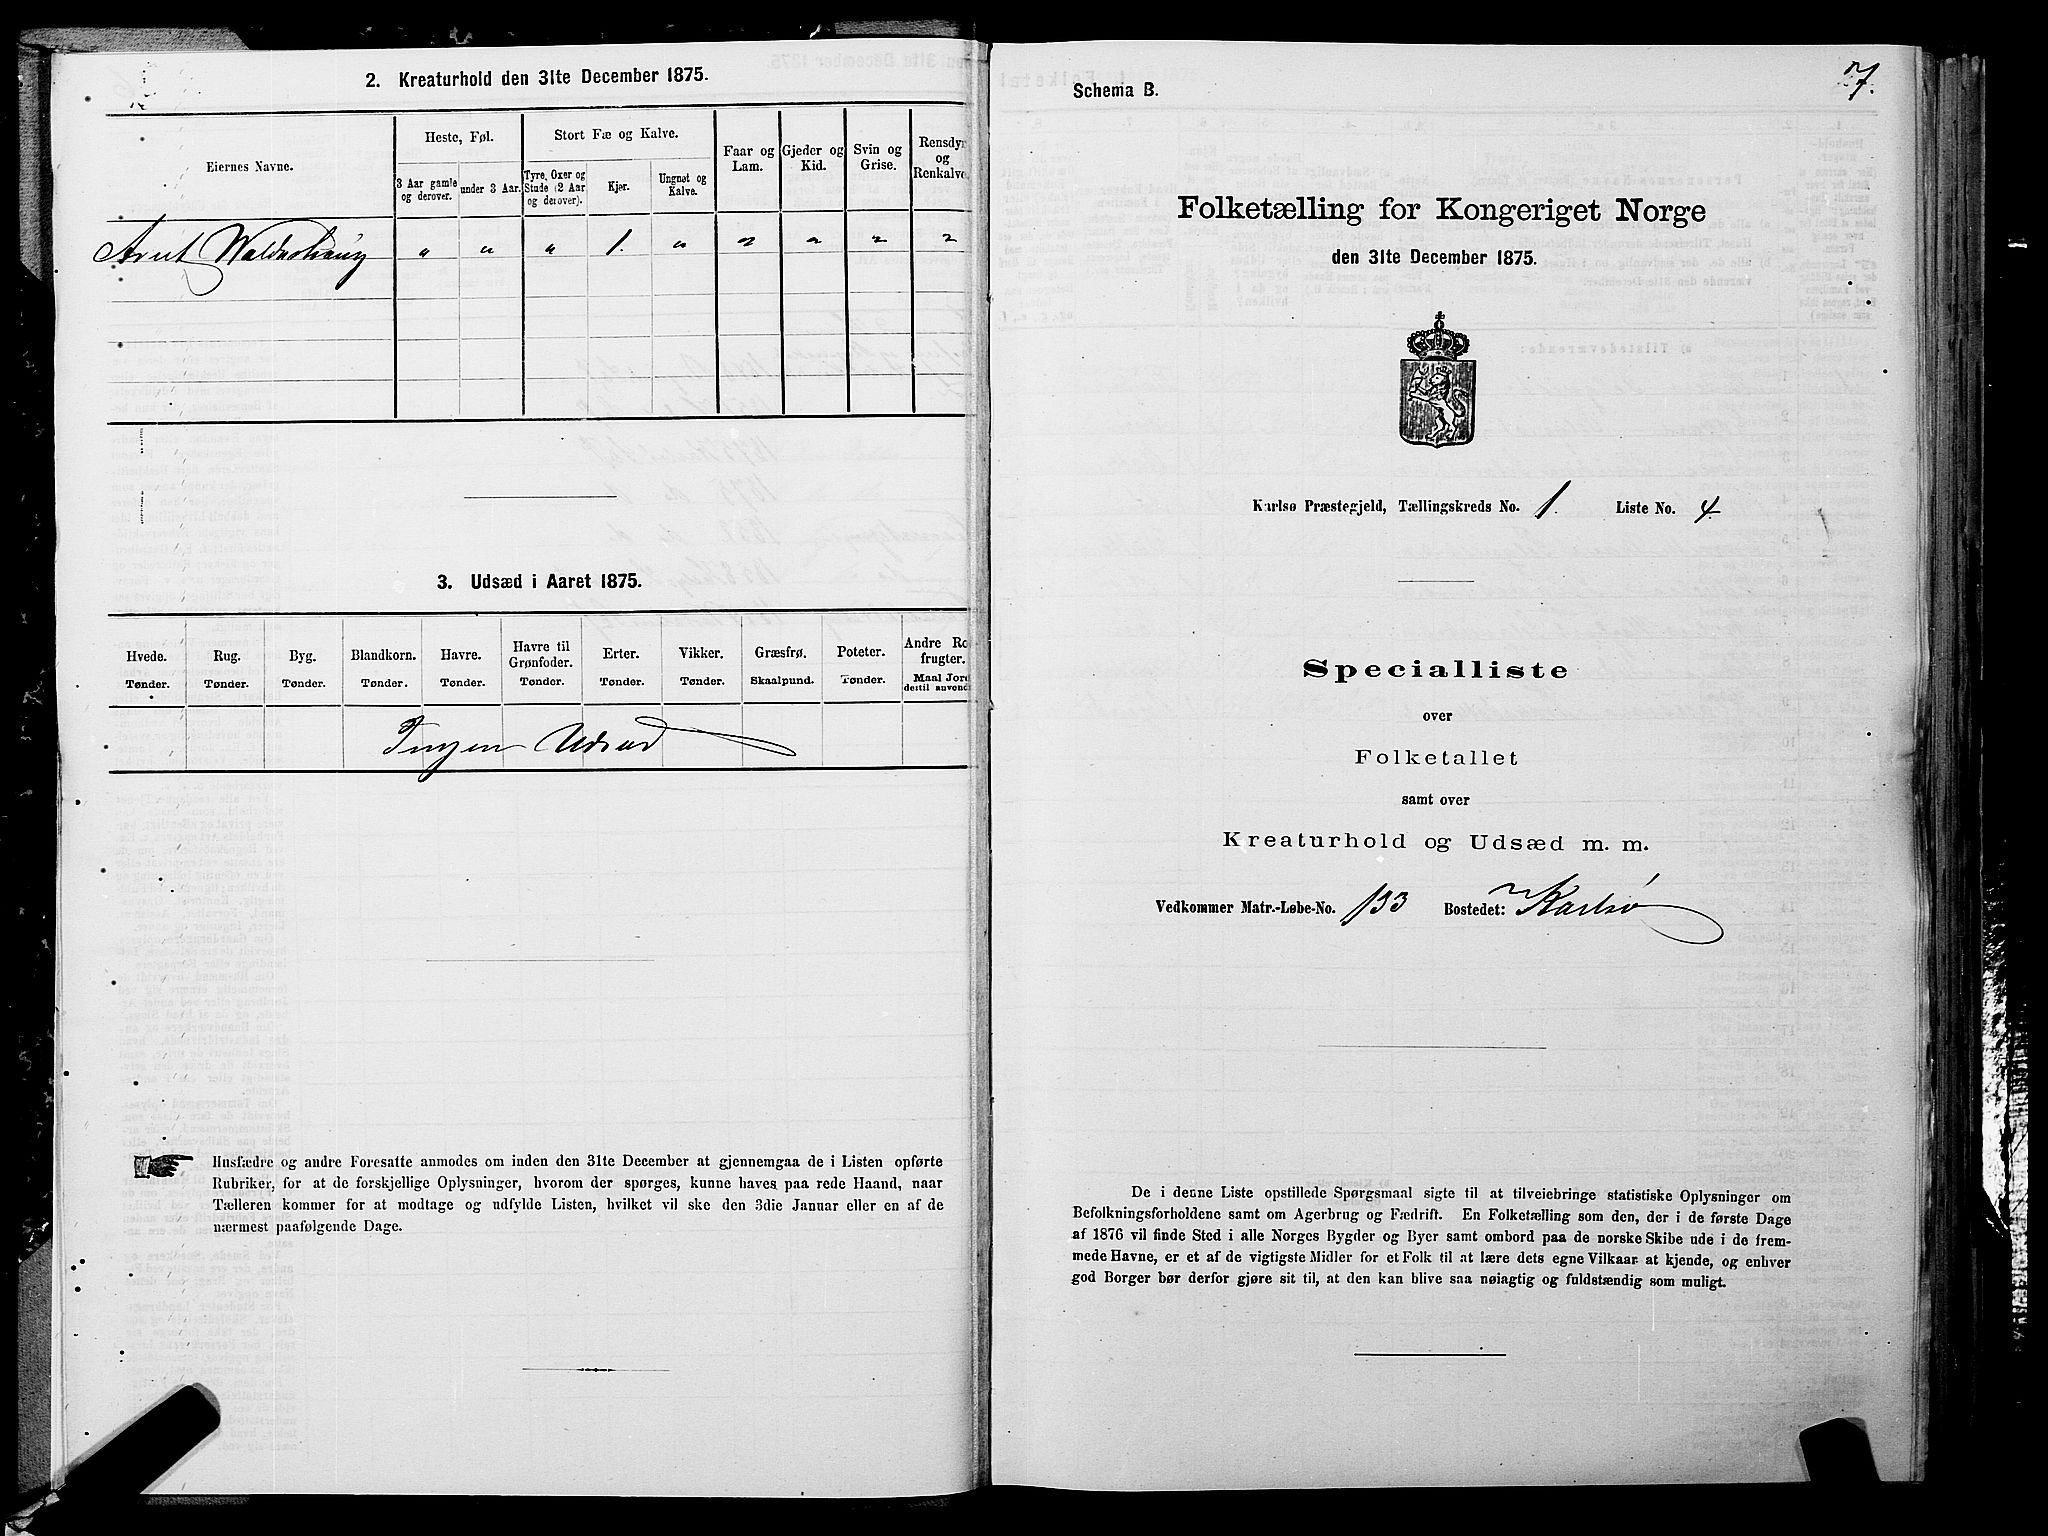 2. Kreaturhold den 31te December 1875.
Eiernes Navne.
Heste, Føl.
3 Aar gamle og derover.
under 3 Aar.
Stort Fæ og Kalve.
Tyre, Oxer og Stude (2 Aar og derover).
Kjør.
Ungnøt og Kalve.
Faar og Lam.
Gjeder og Kid.
Svin og Grise.
Rensdyr og Renkalve.
Arnt Walderhaug " " " 1. " " " " "
3. Udsæd i Aaret 1875.
Hvede. Tønder.
Rug. Tønder.
Byg. Tønder.
Blandkorn. Tønder.
Havre. Tønder.
Havre til Grønfoder. Tønder.
Erter. Tønder.
Vikker. Tønder.
Græsfrø. Skaalpund.
Poteter. Tønder.
Andre Ro
frugter.
Maal Jord
dertil anvendt
Ingen Udsæd
Husfædre og andre Foresatte anmodes om inden den 31te December at gjennemgaa de i Listen opførte
Rubriker, for at de forskjellige Oplysninger, hvorom der spørges, kunne haves paa rede Haand, naar
Tælleren kommer for at modtage og udfylde Listen, hvilket vil ske den 3die Januar eller en af de
nærmest paafølgende Dage.
7.
Schema B.
Folketælling for Kongeriget Norge
den 31te December 1875.
Karlsø Præstegjeld, Tællingskreds No. 1. Liste No. 4.
Specialliste
over
Folketallet
samt over
Kreaturhold og Udsæd m. m.
Vedkommer Matr.-Løbe-No. 133 Bostedet: Karlsø
De i denne Liste opstillede Spørgsmaal sigte til at tilveiebringe statistiske Oplysninger om
Befolkningsforholdene samt om Agerbrug og Fædrift. En Folketælling som den, der i de første Dage
af 1876 vil finde Sted i alle Norges Bygder og Byer samt ombord paa de norske Skibe ude i de frem-
mede Havne, er et af de vigtigste Midler for et Folk til at lære dets egne Vilkaar at kjende, og enhver
god Borger bør derfor gjøre sit til, at den kan blive saa nøiagtig og fuldstændig som muligt.